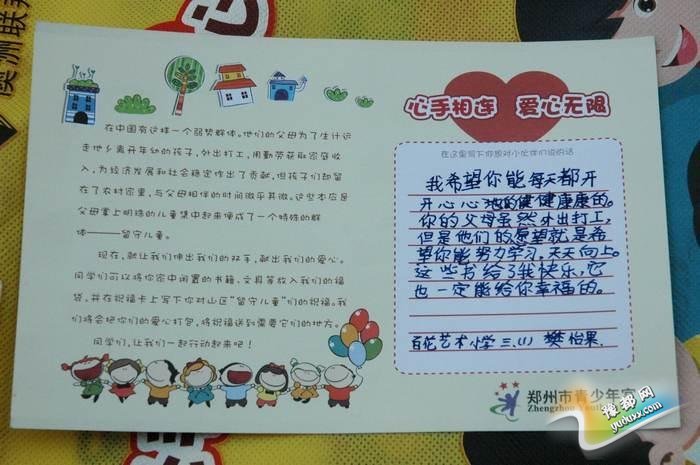 在中国有这样一个弱势群体。他们的父母为了生计远
走他乡离开年幼的孩子，外出打工，用勤劳获取家庭收
入，为经济发展和社会稳定作出了贡献，但孩子们却留
在了农村家里，与父母相伴的时间微乎其微。这些本应是
父母掌上明珠的儿童集中起来便成了一个特殊的群
体——留守儿童。
现在，就让我们伸出我们的双手，献出我们的爱心。
同学们可以将你家中闲置的书籍、文具等放入我们的福
袋，并在祝福卡上写下你对山区“留守儿童”们的祝福。我
们将会把你们的爱心打包，将祝福送到需要它们的地方。
同学们，让我们一起行动起来吧！
心手相连 爱心无限
在这里写下你想对小伙伴们说的话
我希望你能每天都开
开心心地的健健康康的。
你的父母虽然外出打工，
但是他们的愿望就是希
望你能努力学习，天天向上。
这些书给了我快乐，它
也一定能给你幸福的。
百花艺术小学 三.(1) 樊怡果
郑州市青少年宫
Zhengzhou Youth
豫都网
yuduxx.com
澳洲联邦